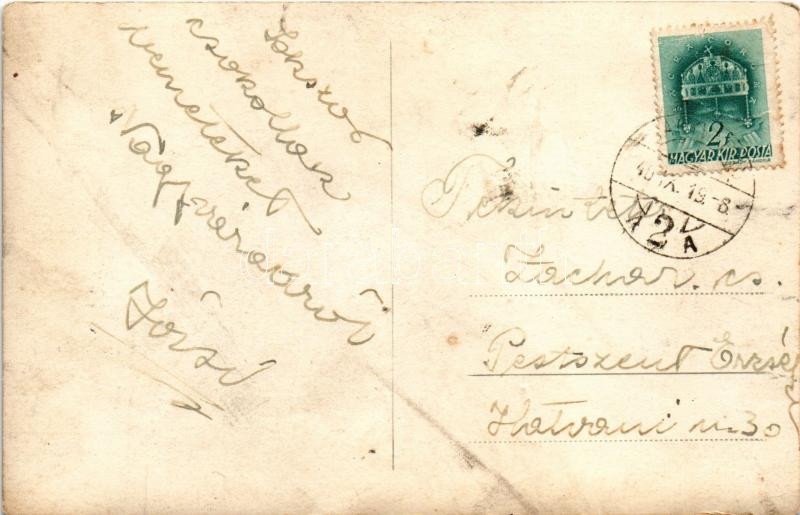 Sokszor
csokollak
nemeteket
Nagyváradról
Józsi
2f
MAGYAR KIR. POSTA
40 IX. 19.-8.
2 A
Tekintetes
Zachar. cs.
Pestszent Erzsé
Hatvani u. 30